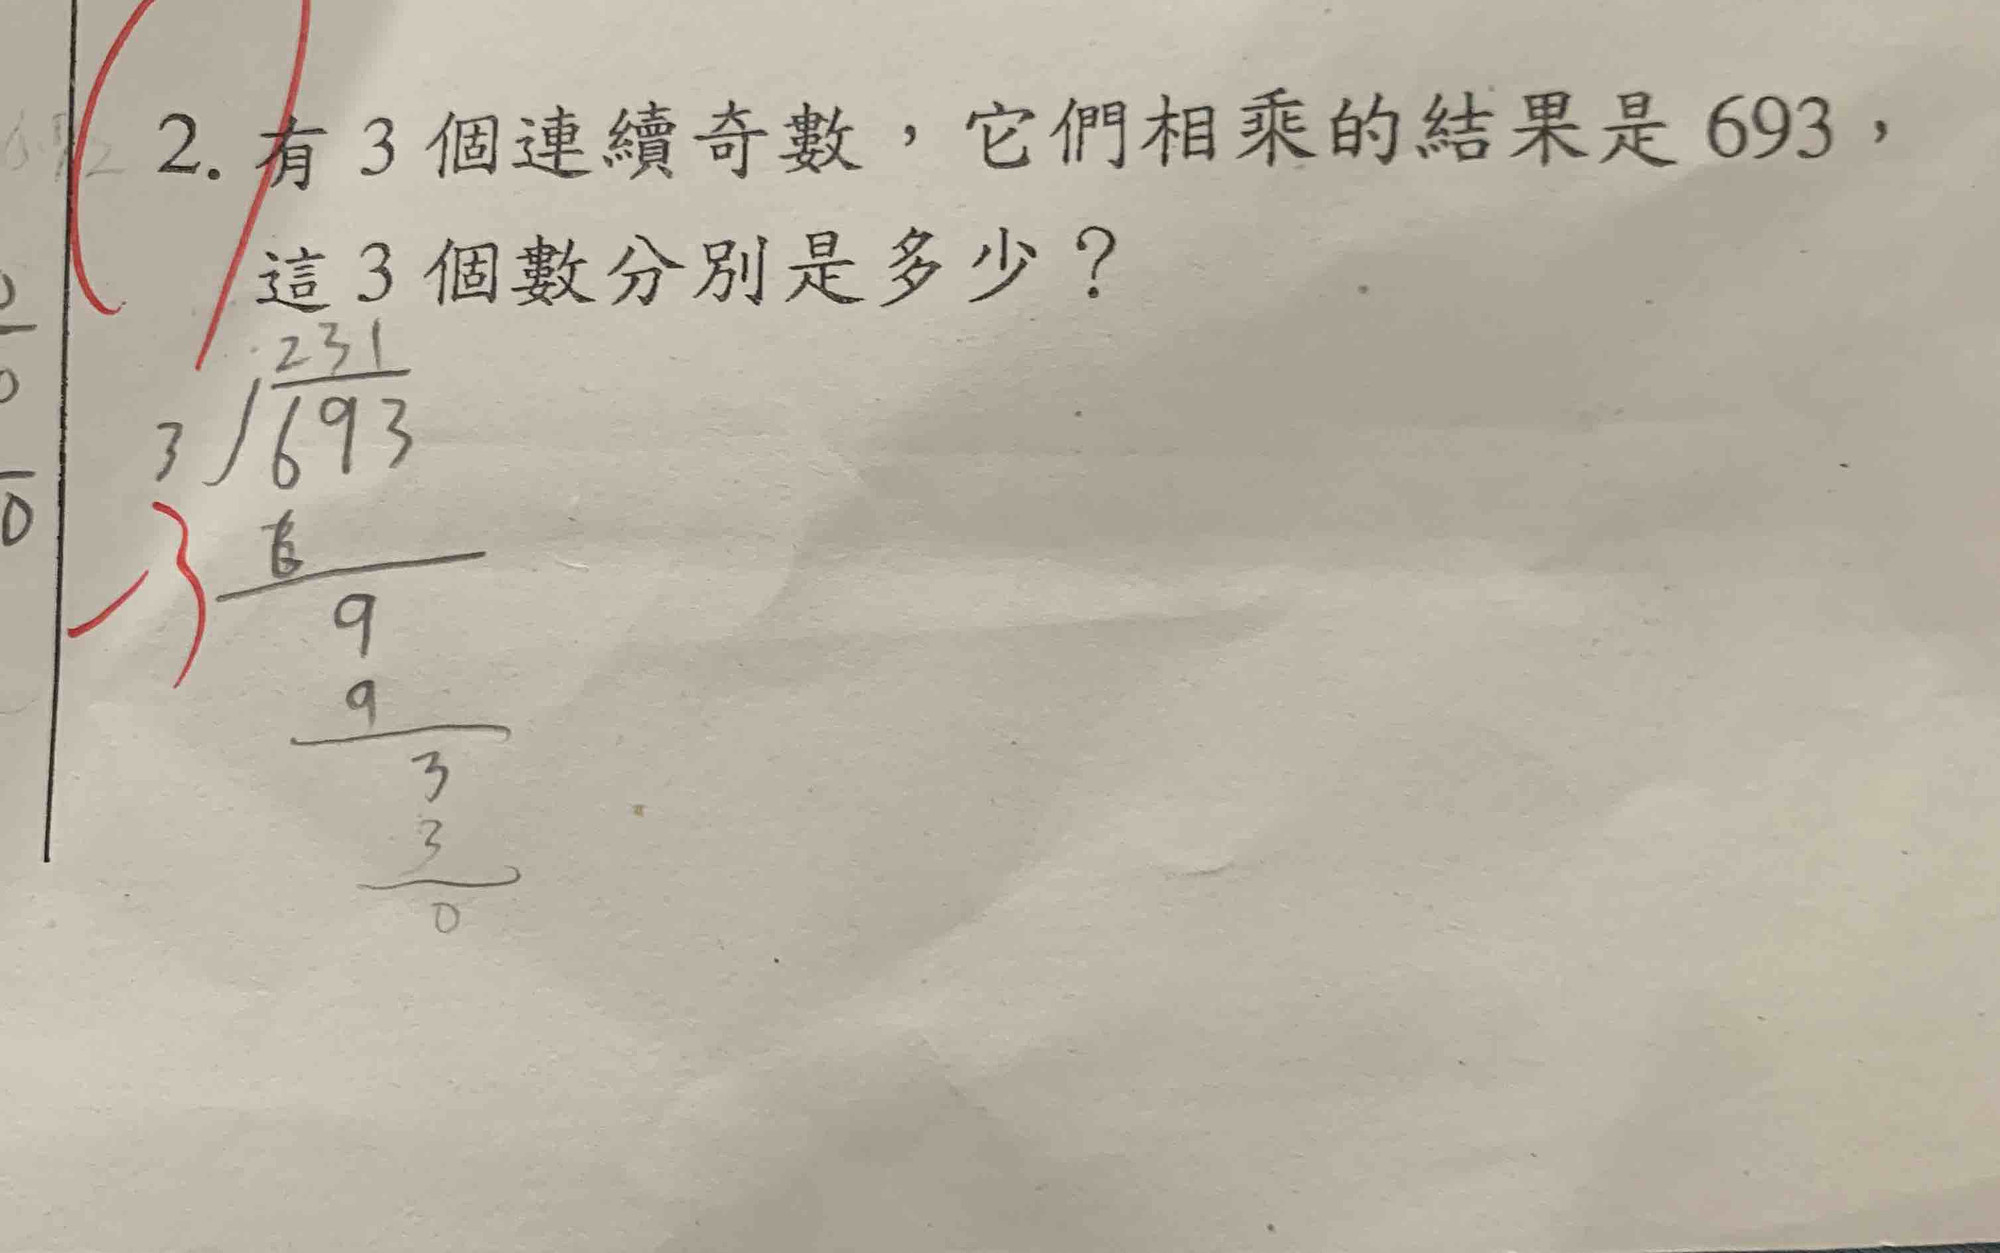 2. 有 3 個連續奇數，它們相乘的結果是 693，
這 3 個數分別是多少？
231
3 693
6
9
9
3
3
0
-3